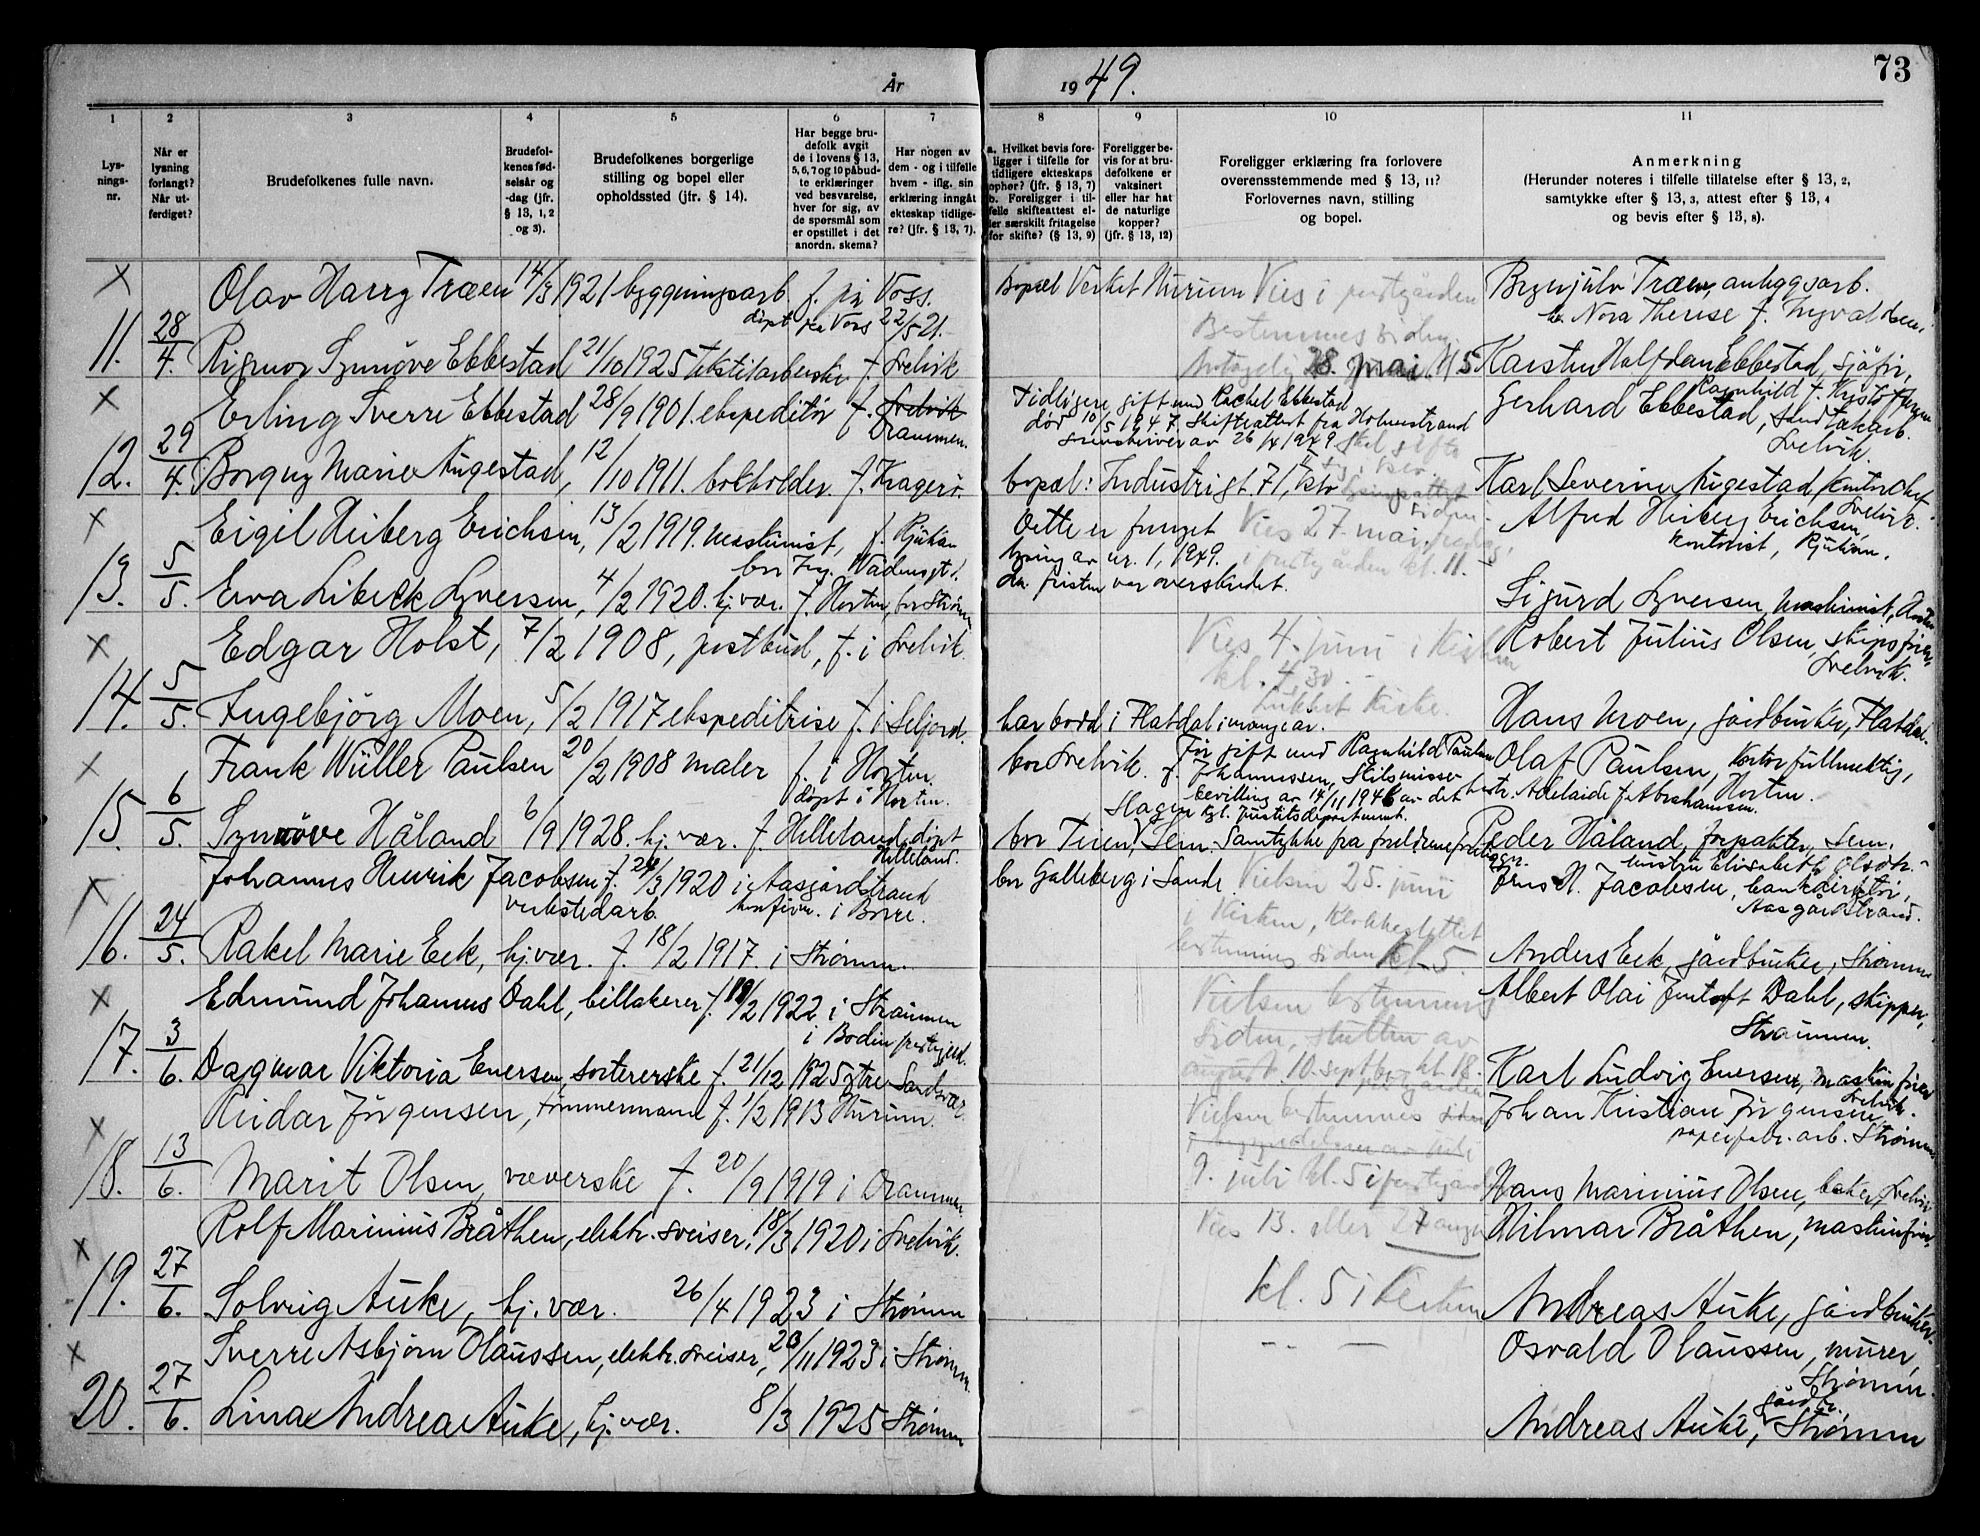 År 1949.
73
1 2 3 4 5 6 7 8 9 10 11
Lysningsnr.
Når er lysning forlangt? Når utferdiget?
Brudefolkenes fulle navn.
Brudefolkenes fødselsår og -dag (jfr. § 13, 1, 2 og 3).
Brudefolkenes borgerlige stilling og bopel eller opholdssted (jfr. § 14).
Har begge brudefolk avgit de i lovens § 13, 5, 6, 7 og 10 påbudte erklæringer ved besvarelse, hver for sig, av de spørsmål som er opstillet i det anordn. skema?
Har nogen av dem - og i tilfelle hvem - iflg. sin erklæring inngåt ekteskap tidligere? (jfr. § 13, 7).
a. Hvilket bevis foreligger i tilfelle for tidligere ekteskaps ophør? (jfr. § 13, 7) b. Foreligger i tilfelle skifteattest eller særskilt fritagelse for skifte? (§ 13, 9)
Foreligger bevis for at brudefolkene er vaksinert eller har hat de naturlige kopper? (jfr. § 13, 12)
Foreligger erklæring fra forlovere overensstemmende med § 13, 11? Forlovernes navn, stilling og bopel.
Anmerkning
(Herunder noteres i tilfelle tillatelse efter § 13, 2, samtykke efter § 13, 3, attest efter § 13, 4 og bevis efter § 13, 8).
X Olav Harry Træen 14/3 1921 byggningsarb. f. på Voss. Bopæl Verket Hurum Vies i prestgården Brynjulv Træen, anleggsarb.
døpt på Voss 22/5 21. Bestemmes siden. Nora Therese f. Ingvaldsen
11. 28/4. Rigmor Synnøve Ebbestad 21/10 1925 tekstilarberske f. Svelvik 28. mai Karsten Halfdan Ebbestad, sjåfør,
Ragnhild f.
X Erling Sverre Ebbestad 28/9 1901. ekspeditør f. Svelvik Drammen. Tidligere gift med Rachel Ebbestad Gerhard Ebbestad, Sandtakarb. Svelvik.
død 10/5 1947. Skifteattest fra Holmestrand
sorenskriver av 26/4 1949
12. 29/4. Borgny Marie Augestad, 12/10 1911. bokholder. f. Kragerø. bopæl: Industrigt. 71, Oslo Karl Severin Augestad, kontorchef Svelvik.
X Eigil Heiberg Erichsen, 13/2 1919. maskinist, f. Rjukan Dette er funget Vies 27. mai, fredag, Alfred Heiberg Erichsen,
lysning av nr. 1, 1949. i prestgården kl. 11. kontorist, Rjukan.
da fristen var overskredet.
13. 5/5. Eva Libeck Syversen, 4/2 1920. hj. vær. f. Horten, bor Strømm Sigurd Syversen, maskinist, Horten
X Edgar Holst, 7/2 1908, postbud, f. i Svelvik. Vies 4. juni i Kirken Robert Julius Olsen, skipsfører,
kl. 4,30. Svelvik.
Lukket Kirke.
14. 5/5. Ingebjörg Moen, 5/2 1917 ekspeditrise f. i Seljord. har bodd i Flatdal i mange år. Hans Moen, gårdbruker, Flatdal.
X Frank Wüller Paulsen 20/2 1908 maler f. i Horten. bor Svelvik. Før gift med Ragnhild Paulsen Olaf Paulsen, kontorfullmektig,
døpt i Horten. f. Johannessen, Skilsmisse- Adelaide f. Abrahamsen. Horten.
bevilling av 14/11 1946 av det
kgl. justitsdepartement.
15. 6/5. Synnöve Håland 6/9 1928. hj. vær. f. Helleland, døpt Helleland. bor Teien, Sem. Samtykke fra foreldrene foreligger. Peder Håland, forpakter, Sem.
Elisabeth Olsdtr.
X Johannes Henrik Jacobsen f. 24/3 1920 i Aasgårdstrand bor Galleberg i Sande. Vielsen 25. juni Jens N. Jacobsen, bankdirektør,
verkstedarb. konfirm. i Borre. i Kirken, Klokkeslettet Aasgårdstrand.
16. 24/5. Rakel Marie Eek, hj. vær. f. 18/2 1917. i Strømm. bestemmes siden kl. 5. Anders Eek, gårdbruker, Strømm
X Edmund Johannes Dahl, billakerer f. 19/2 1922 i Straumen Vielsen bestemmes Albert Olai Dahl, skipper,
i Bodin prestgjeld. siden, slutten av Straumen.
17. 3/6. Dagmar Viktoria Eversen, sortererske f. 21/12 1925 ytre Sandsvær. august. 10. septbr. kl. 18. Karl Ludvig Eversen, maskinfører Svelvik.
X Heidar Jörgensen, tømmermand f. 1/2 1913 Hurum. Vielsen bestemmes siden Johan Kristian Jörgensen,
papirfabr. arb. Strømm
18. 13/6. Marit Olsen, væverske f. 20/9 1919 i Drammen. 9. juli kl. 5 i prestegården Hans Marinius Olsen, baker, Svelvik
X Rolf Marinius Bråthen, elektr. sveiser, 18/3 1920 i Svelvik. Vies 13. eller 27 august Hilmar Bråthen, maskinfører,
19. 27/6. Solveig Auke, hj. vær. 26/4 1923 i Strømm kl. 5 i Kirken Andreas Auke, gårdbruker
X Sverre Asbjørn Olaussen, elektr. sveiser, 23/11 1923 i Strømm. Osvald Olaussen, murer,
Strømm.
20. 27/6. Lina Andrea Auke, hj. vær. 8/3 1925 Strømm Andreas Auke, gårdbr. Strømm